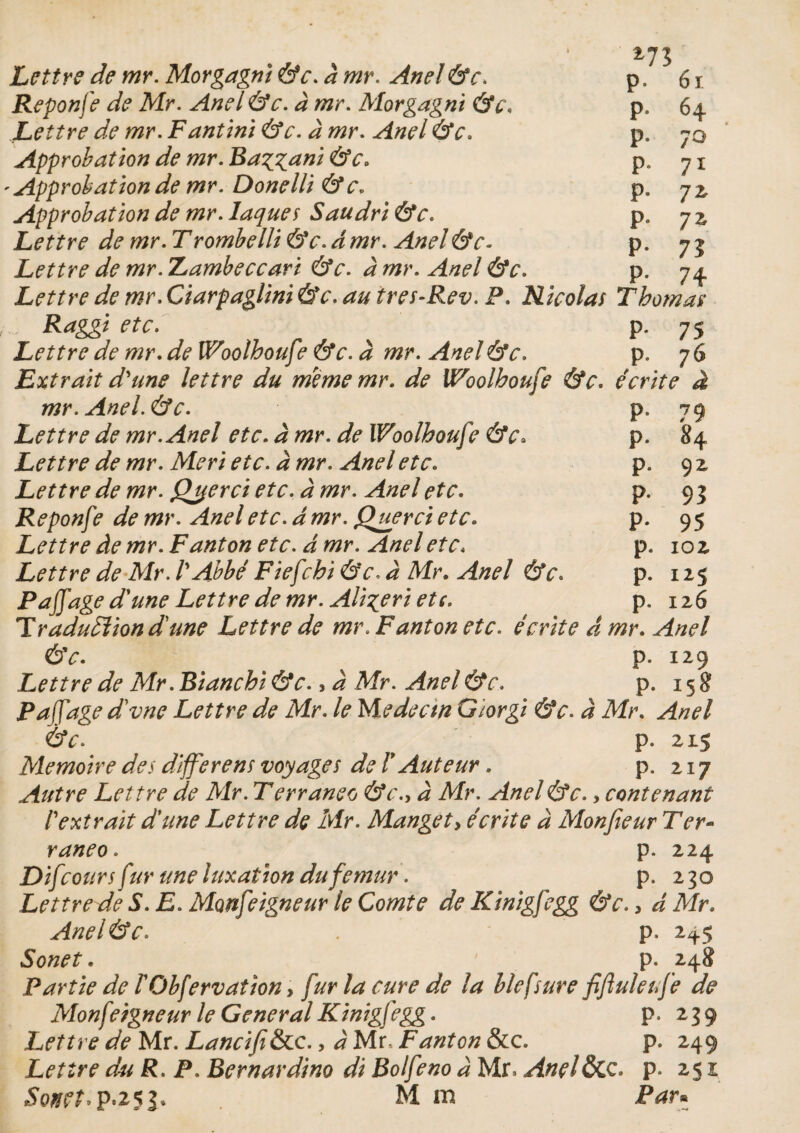 273
Lettre de mr. Morgagni &c. à mr. Anel &c. p. 61
Reponſe de Mr. Anel &c. à mr. Morgagni &c. p. 64
Lettre de mr. Fantini &c. à mr. Anel &c. p. 70
Approbation de mr. Bazzani &c. p. 71
Approbation de mr. Donelli &c. p. 72
Approbation de mr. Iaques Saudri &c. p. 72
Lettre de mr. Trombelli &c. á mr. Anel &c. p. 73
Lettre de mr. Zambeccari &c. à mr. Anel &c. p. 74
Lettre de mr. Ciarpaglini &c. au tres-Rev. P. Nicolas Thomas
Raggi etc. p. 75
Lettre de mr. de Woolhouſe &c. à mr. Anel &c. p. 76
Extrait d'une lettre du même mr. de Woolhouſe &c. écrite à
mr. Anel. &c. p. 79
Lettre de mr. Anel etc. à mr. de Woolhouſe &c. p. 84
Lettre de mr. Meri etc. à mr. Anel etc. p. 92
Lettre de mr. Querci etc. à mr. Anel etc. p. 93
Reponſe de mr. Anel etc. á mr. Querci etc. p. 95
Lettre de mr. Fanton etc. á mr. Anel etc. p. 102
Lettre de Mr. l'Abbé Fieſchi &c. à Mr. Anel &c. p. 125
Paſſage d'une Lettre de mr. Alizeri etc. p. 126
Traduction d'une Lettre de mr. Fanton etc. écrite á mr. Anel
&c. p. 129
Lettre de Mr. Bianchi &c., à Mr. Anel &c. p. 158
Paſſage d'vne Lettre de Mr. le Medecin Giorgi &c. à Mr. Anel
&c. p. 215
Memoire des differens voyages de l'Auteur. p. 217
Autre Lettre de Mr. Terraneo &c., à Mr. Anel &c., contenant
l'extrait d'une Lettre de Mr. Manget, écrite à Monſieur Ter-
raneo. p. 224
Diſcours ſur une luxation du femur. p. 230
Lettre de S. E. Monſeigneur le Comte de Kinigſegg &c., á Mr.
Anel &c. p. 245
Sonet. p. 248
Partie de l'Obſervation, ſur la cure de la bleſsure fiſtuleuſe de
Monſeigneur le General Kinigſegg. p. 239
Lettre de Mr. Lanciſi &c., à Mr. Fanton &c. p. 249
Lettre du R. P. Bernardino di Bolſeno à Mr. Anel &c. p. 251
Sonet. p. 253. M m Par-